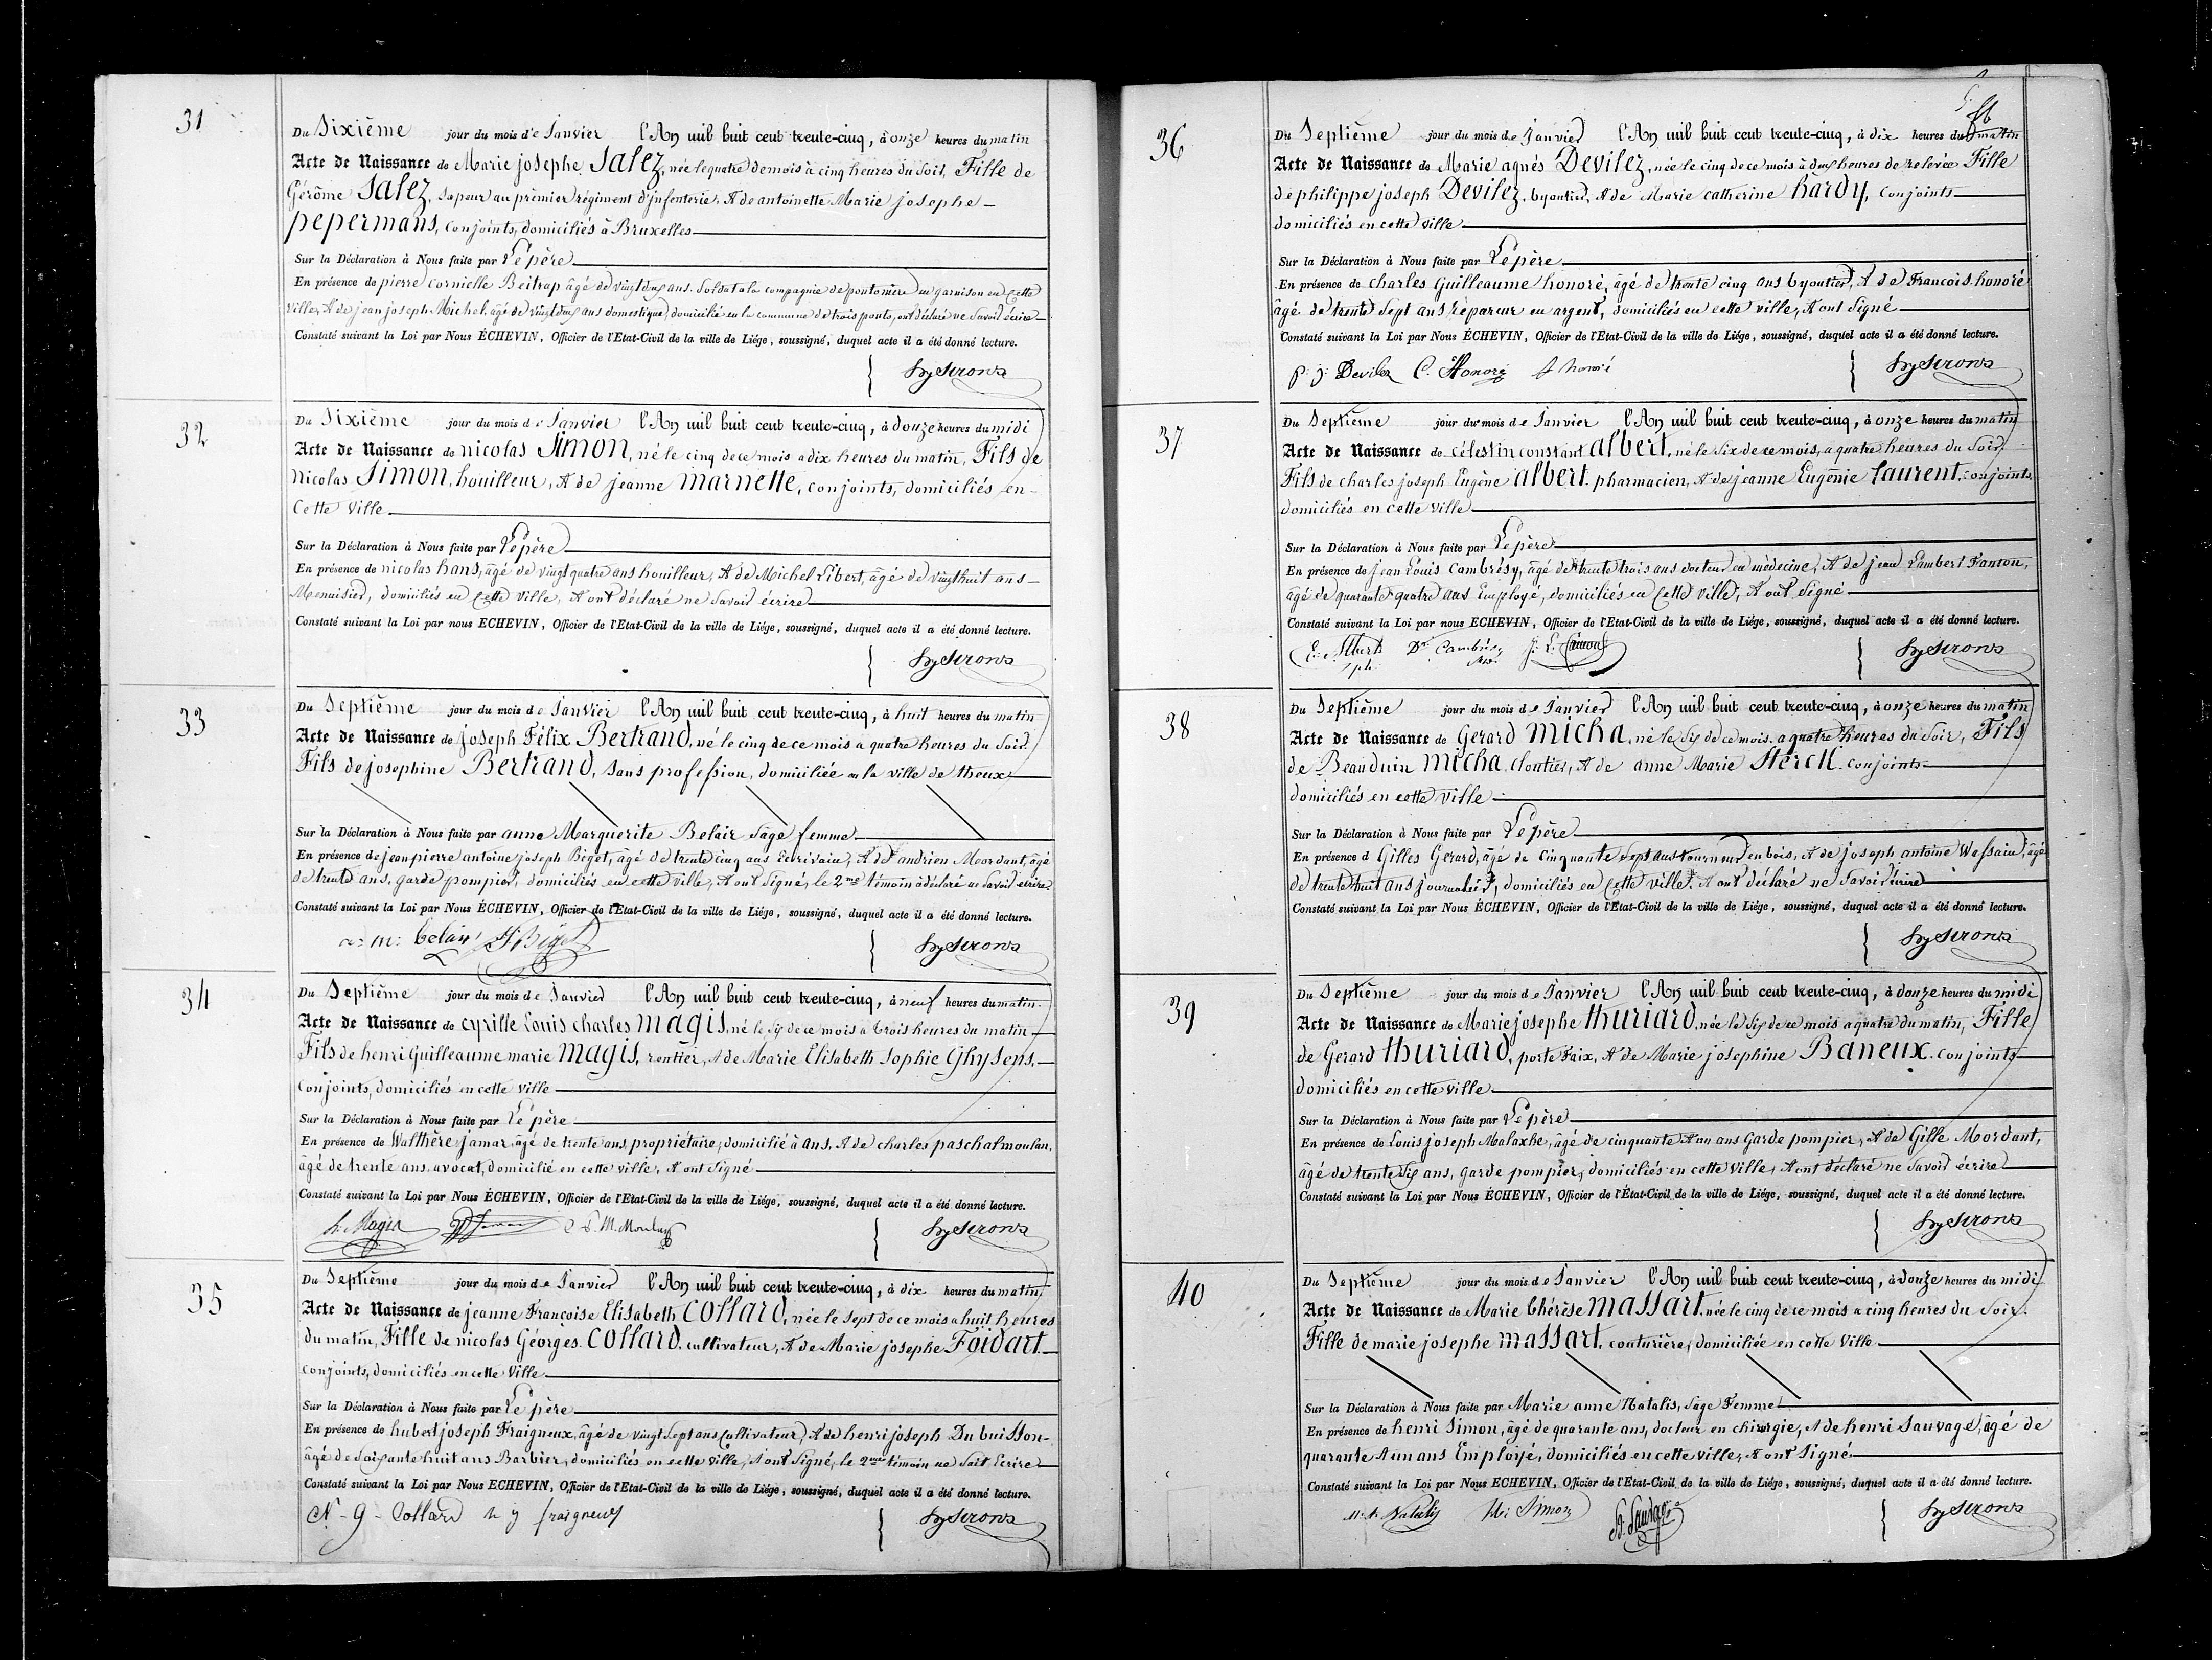 31
Du Sixième jour du mois de Janvier l'An mil huit cent trente-cinq, à onze heures du matin
Acte de Naissance de Marie josephe Salez, née le quatre de mois à cinq heures du Soir, Fille de
Gérôme Salez, Sapeur au prèmier régiment d'jnfenterie, & de antoinette Marie josephe
pepermans, conjoints, domiciliés à Bruxelles
Sur la Déclaration à Nous faite par Le père
En présence de pierre cornielle Beitrap âgé de vingt deux ans, Soldat a la compagnie de pontoniere en garnison en Cette
Ville, & de jean joseph Michel, âgé de vingt deux ans domestique, domicilié en la commune de trois ponts, ont déclaré ne Savoir écrire
Constaté suivant la Loi par Nous ÉCHEVIN, Officier de l'Etat-Civil de la ville de Liége, soussigné, duquel acte il a été donné lecture.
32
Du Sixième jour du mois de Janvier l'An mil huit cent trente-cinq, à douze heures du midi
Acte de Naissance de nicolas Simon, né le cinq de ce mois a dix heures du matin, Fils de
Nicolas Simon, houilleur, & de jeanne marnette, conjoints, domiciliés en
Cette Ville
Sur la Déclaration à Nous faite par Le père
En présence de nicolas hans, âgé de vingt quatre ans houilleur, & de Michel Libert, âgé de vingt huit ans
Menuisier, domiciliés en Cette Ville, & ont déclaré ne Savoir écrire
Constaté suivant la Loi par nous ECHEVIN, Officier de l'Etat-Civil de la ville de Liége, soussigné, duquel acte il a été donné lecture.
33
Du Septième jour du mois de Janvier l'An mil huit cent trente-cinq, à huit heures du matin
Acte de Naissance de joseph Félix Bertrand, né le cinq de ce mois a quatre heures du Soir.
Fils de josephine Bertrand, Sans profession, domiciliée en la ville de theux
Sur la Déclaration à Nous faite par anne Marguerite Belair Sage femme
En présence de jean pierre antoine joseph Biget, âgé de trente cinq ans Ecrivain, & de andrien Mordant, âgé
de trente ans, garde pompier, domiciliés en cette ville, & ont Signé, le 2me témoin a déclaré ne Savoir ecrire
Constaté suivant la Loi par Nous ÉCHEVIN, Officier de l'Etat-Civil de la ville de Liége, soussigné, duquel acte il a été donné lecture.
a: m: belair
34
Du Septième jour du mois de Janvier l'An mil huit cent trente-cinq, à neuf heures du matin
Acte de Naissance de cyrille Louis charles magis, né le Six de ce mois à trois heures du matin
Fils de henri Guilleaume marie magis, rentier, & de Marie Elisabeth Sophie Ghysens,
Conjoints, domiciliés en cette Ville
Sur la Déclaration à Nous faite par Le père
En présence de Walthère jamar, âgé de trente ans, propriétaire, domicilié à ans, & de charles paschal moulan,
âgé de trente ans, avocat, domicilié en cette ville, & ont Signé
Constaté suivant la Loi par Nous ÉCHEVIN, Officier de l'Etat-Civil de la ville de Liége, soussigné, duquel acte il a été donné lecture.
h. Magis
35
Du Septième jour du mois de Janvier l'An mil huit cent trente-cinq, à dix heures du matin
Acte de Naissance de jeanne Francoise Elisabeth Collard, née le Sept de ce mois a huit heures
du matin, Fille de nicolas Géorges Collard, cultivateur, & de Marie josephe Foidart
conjoints, domiciliés en cette Ville
Sur la Déclaration à Nous faite par Le père
En présence de hubert joseph Fraigneux, âgé de vingt Sept ans Cultivateur, & de henri joseph Du buisson
âgé de Soixante huit ans Barbier, domiciliés en cette ville, & ont Signé, le 2me témoin ne Sait Ecrire
Constaté suivant la Loi par Nous ECHEVIN, Officier de l'Etat-Civil de la ville de Liége, soussigné, duquel acte il a été donné lecture.
N - g - Collard h j fraigneux
36
Du Septième jour du mois de Janvier l'An mil huit cent trente-cinq, à dix heures du matin
Acte de Naissance de Marie agnés Devilez, née le cinq de ce mois à deux heures de relevée Fille
de philippe joseph Devilez, byoutier, & de Marie catherine hardy, Conjoints
domiciliés en cette Ville
Sur la Déclaration à Nous faite par Le père
En présence de charles Guilleaume honoré, âgé de trente cinq ans byoutier, & de Francois honoré
âgé de trente Sept ans répareur en argent, domiciliés en cette ville, & ont Signé
Constaté suivant la Loi par Nous ÉCHEVIN, Officier de l'Etat-Civil de la ville de Liége, soussigné, duquel acte il a été donné lecture.
p: j: Devilez C. Honoré f honoré
37
Du Septième jour du mois de Janvier l'An mil huit cent trente-cinq, à onze heures du matin
Acte de Naissance de célestin constant albert, né le Six de ce mois, a quatre heures du Soir
Fils de charles joseph Eugêne albert pharmacien, & de jeanne Eugênie Laurent, conjoints,
domiciliés en cette ville
Sur la Déclaration à Nous faite par Le père
En présence de jean Louis Cambrésy, âgé de trente trois ans docteur en médecine, & de jean Lambert Fanton,
âgé de quarante quatre ans Employé, domiciliés en Cette Ville, & ont Signé
Constaté suivant la Loi par nous ECHEVIN, Officier de l'Etat-Civil de la ville de Liége, soussigné, duquel acte il a été donné lecture.
E: Albert Dr Cambrésy
38
Du Septième jour du mois de Janvier l'An mil huit cent trente-cinq, à onze heures du matin
Acte de Naissance de Gerard micha, né le Six de ce mois a quatre heures du Soir, Fils
de Beauduin micha, cloutier, & de anne Marie Sterck conjoints
domiciliés en cette Ville
Sur la Déclaration à Nous faite par Le père
En présence d Gilles Gerard, âgé de Cinquante Sept ans tourneur en bois, & de joseph antoine Wassain, âgé
de trente huit ans journalier, domiciliés en Cette Ville, & ont déclaré ne Savoir écrire
Constaté suivant la Loi par Nous ÉCHEVIN, Officier de l'Etat-Civil de la ville de Liége, soussigné, duquel acte il a été donné lecture.
39
Du Septième jour du mois de Janvier l'An mil huit cent trente-cinq, à douze heures du midi
Acte de Naissance de Marie josephe thuriard, née le Six de ce mois a quatre du matin, Fille
de Gerard thuriard, porte Faix, & de Marie josephine Baneux conjoints
domiciliés en cette ville
Sur la Déclaration à Nous faite par Le père
En présence de Louis joseph Malaxhe, âgé de cinquante & un ans Garde pompier, & de Gille Mordant,
âgé de trente Six ans, garde pompier, domiciliés en cette Ville, & ont déclaré ne Savoir écrire
Constaté suivant la Loi par Nous ÉCHEVIN, Officier de l'État-Civil de la ville de Liége, soussigné, duquel acte il a été donné lecture.
40
Du Septième jour du mois de Janvier l'An mil huit cent trente-cinq, à douze heures du midi
Acte de Naissance de Marie thérèse massart, née le cinq de ce mois a cinq heures du Soir.
Fille de marie josephe massart, couturière, domiciliée en cette Ville
Sur la Déclaration à Nous faite par Marie anne Natalis, Sage Femme
En présence de henri Simon, âgé de quarante ans, docteur en chirurgie, & de henri Sauvage, âgé de
quarante & un ans Employé, domiciliés en cette ville, & ont Signé
Constaté suivant la Loi par Nous ECHEVIN, Officier de l'Etat-Civil de la ville de Liége, soussigné, duquel acte il a été donné lecture.
M: A. Natalis H: Simon H. Sauvage